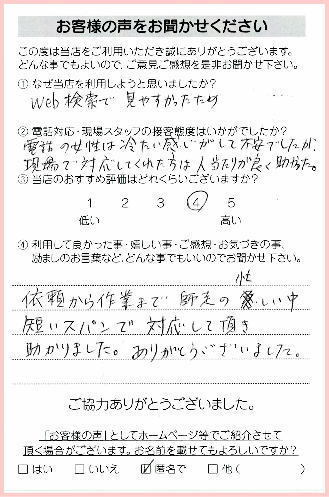 お客様の声をお聞かせください
この度は当店をご利用いただき誠にありがとうございます。
どんな事でもよいので、ご意見ご感想を是非お聞かせ下さい。
① なぜ当店を利用しようと思いましたか?
Web検索で 見やすかったため
② 電話対応・現場スタッフの接客態度はいかがでしたか?
電話の女性は冷たい感じがして不安でしたが、
現場で対応してくれた方は人当たりが良く助かった。
③ 当店のおすすめ評価はどれくらいございますか?
1 2 3 4 5
低い 高い
④ 利用して良かった事・嬉しい事・ご感想・お気づきの事、
励ましのお言葉など、どんな事でもいいのでお聞かせ下さい。
忙
依頼から作業まで 師走の しい中
短いスパンで対応して頂き
助かりました。ありがとうございました。
ご協力ありがとうございました。
「お客様の声」としてホームページ等でご紹介させて
頂く場合がございます。お名前を載せてもよろしいですか?
□はい □いいえ ☑匿名で □他( )